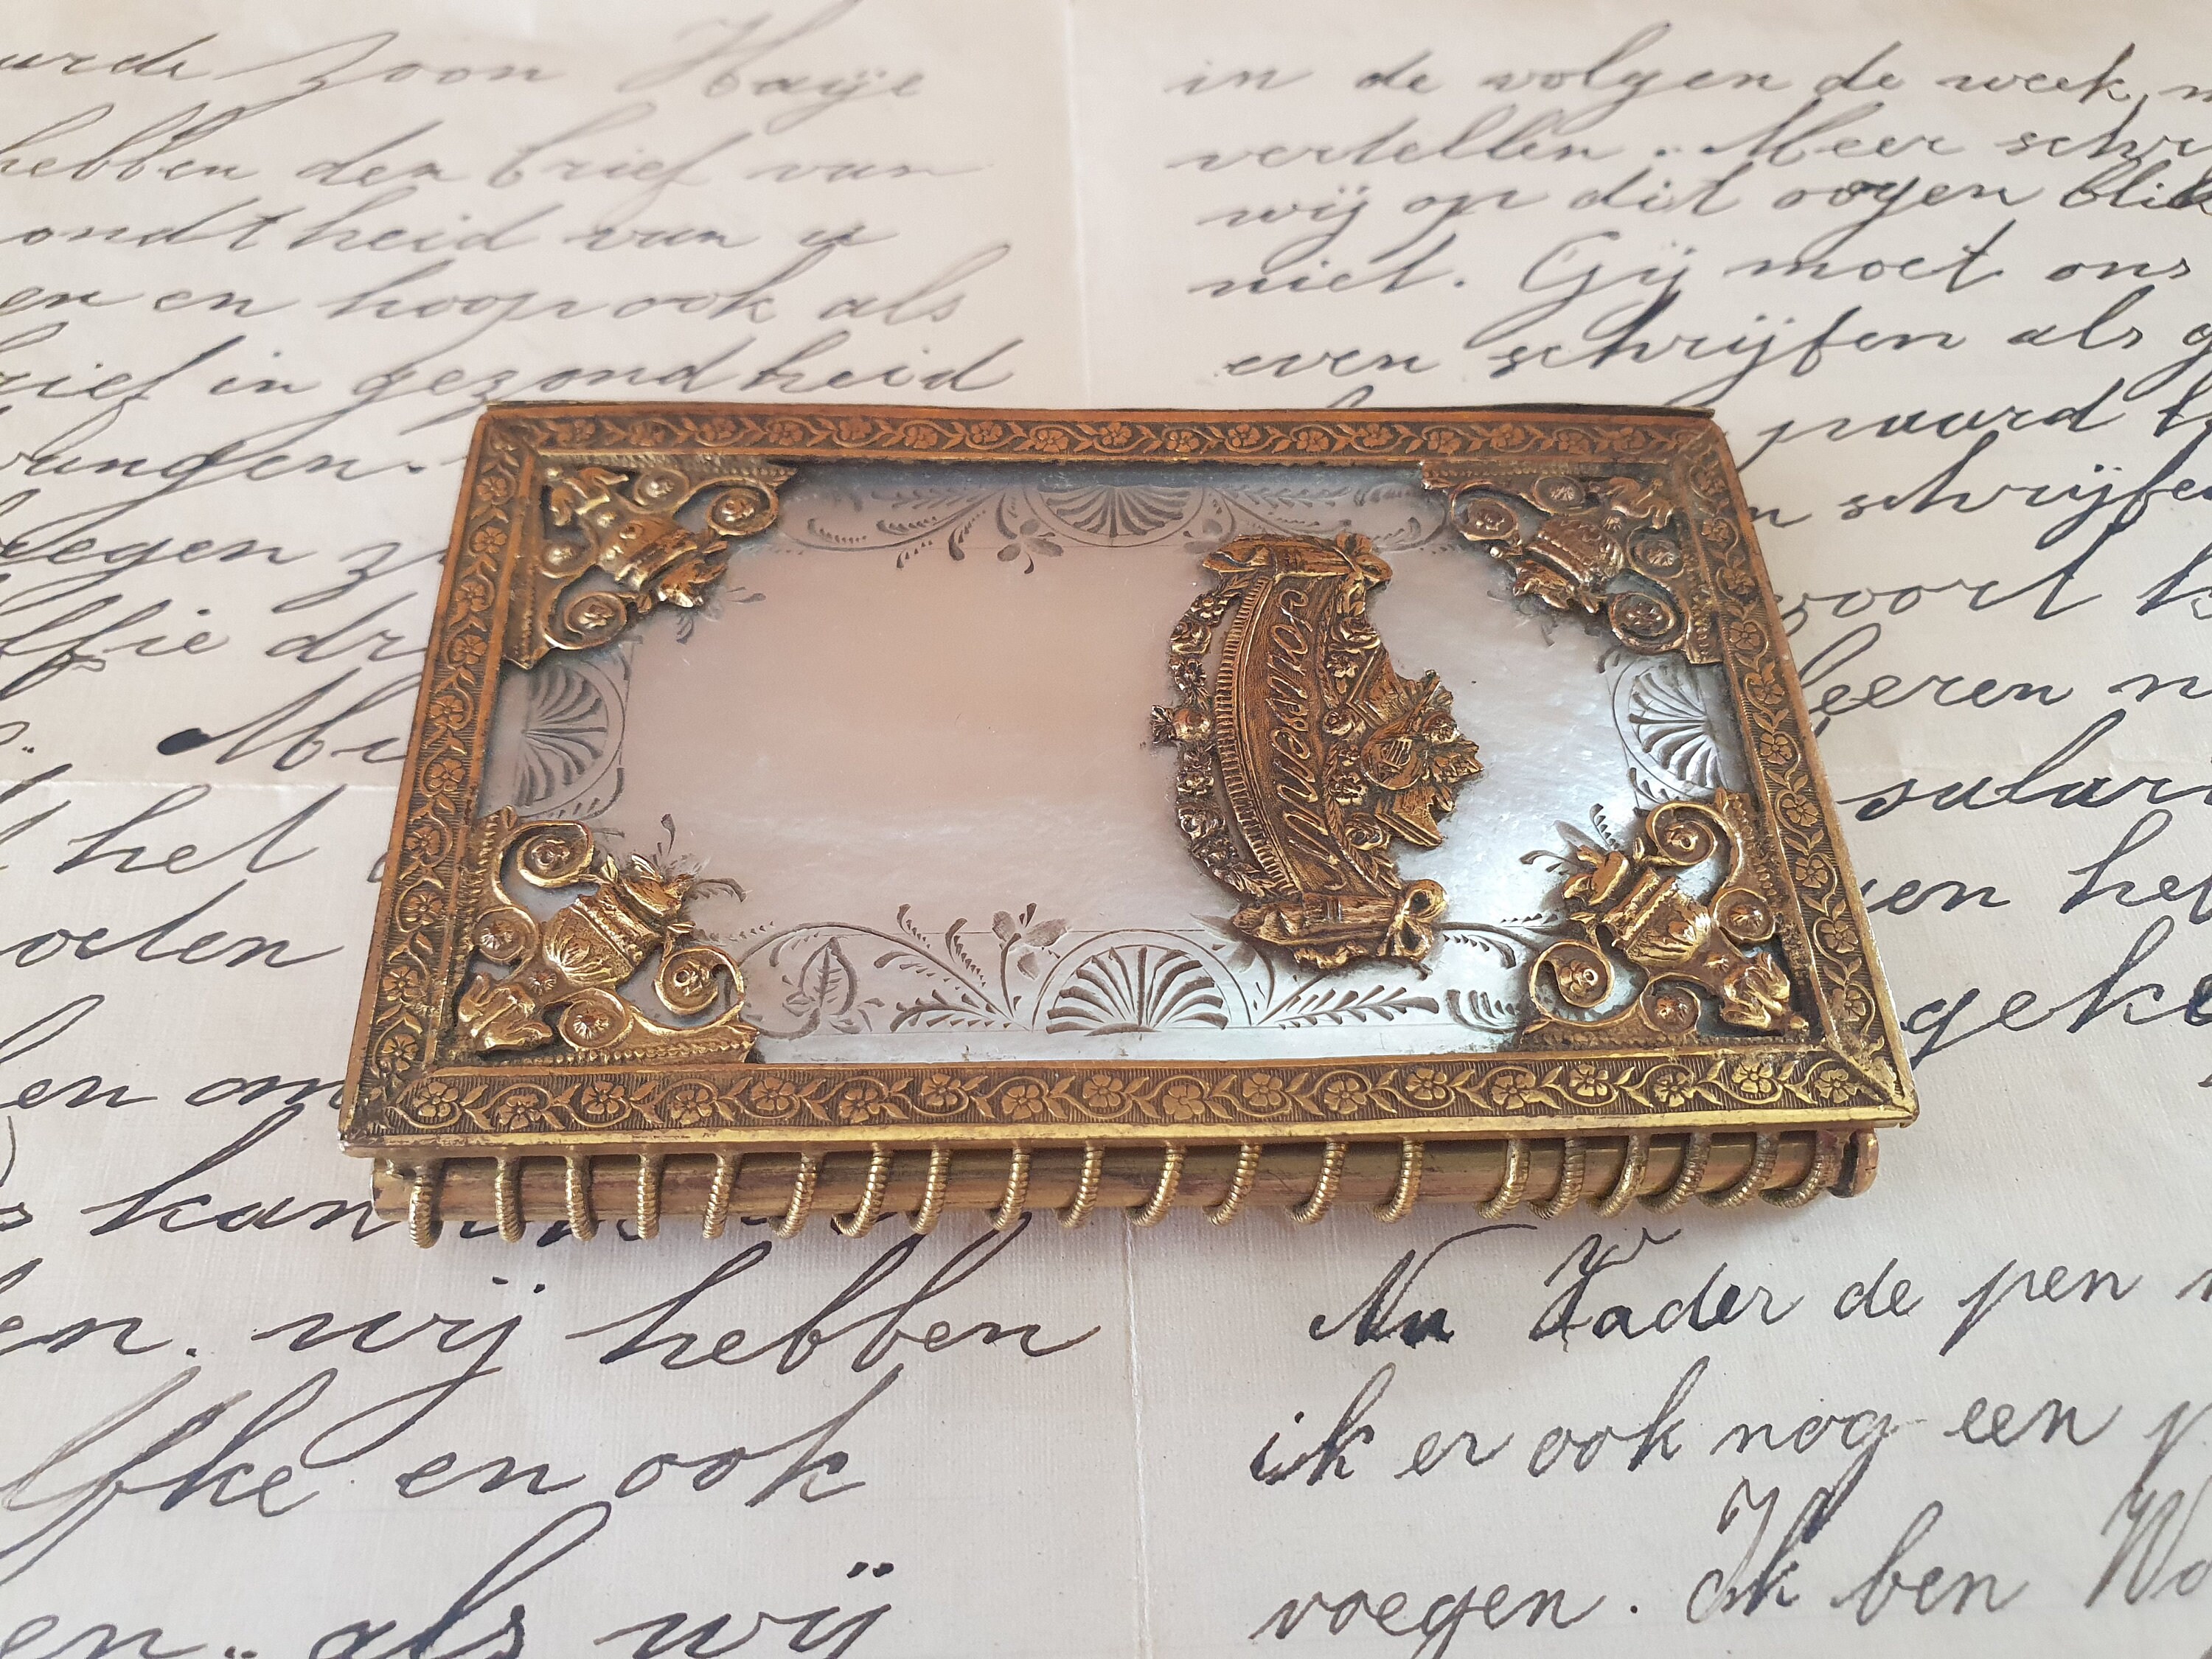 zoon Haije
hebben den brief van
ondt heid van u
en en hoop ook als
rief in gezondheid
vangen.
leegen
het
oeten
en om
kan
en. wij hebben
en ook
en.. als wij
in de volgen de week
vertellen.. Meer schr
wij op dit oogen blik
niet. Gij moet ons
even schrijfen als g
paard
n schrijfe
woort
leeren
salar
en het
Souvenir
Nu Vader de pen
ik er ook nog een
voegen. Ik ben